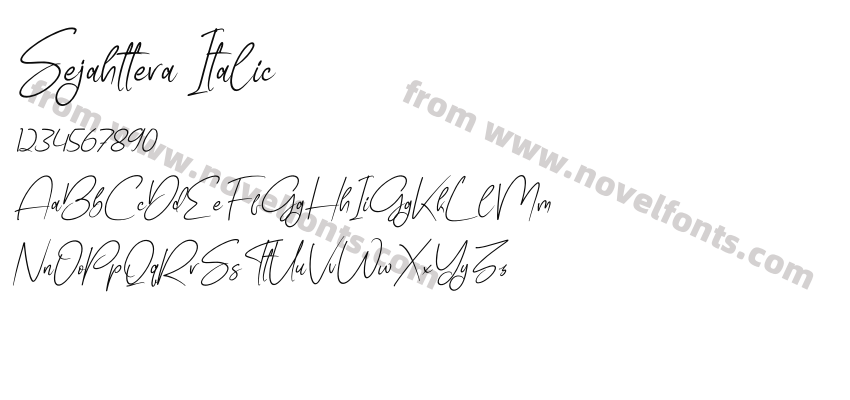 Sejahttera Italic
1234567890
AaBbCcDdEeFfGgHhIiGgKkLlMm
NnOoPpQqRrSsTtUuVvWwXxYyZz
from www.novelfonts.com
from www.novelfonts.com